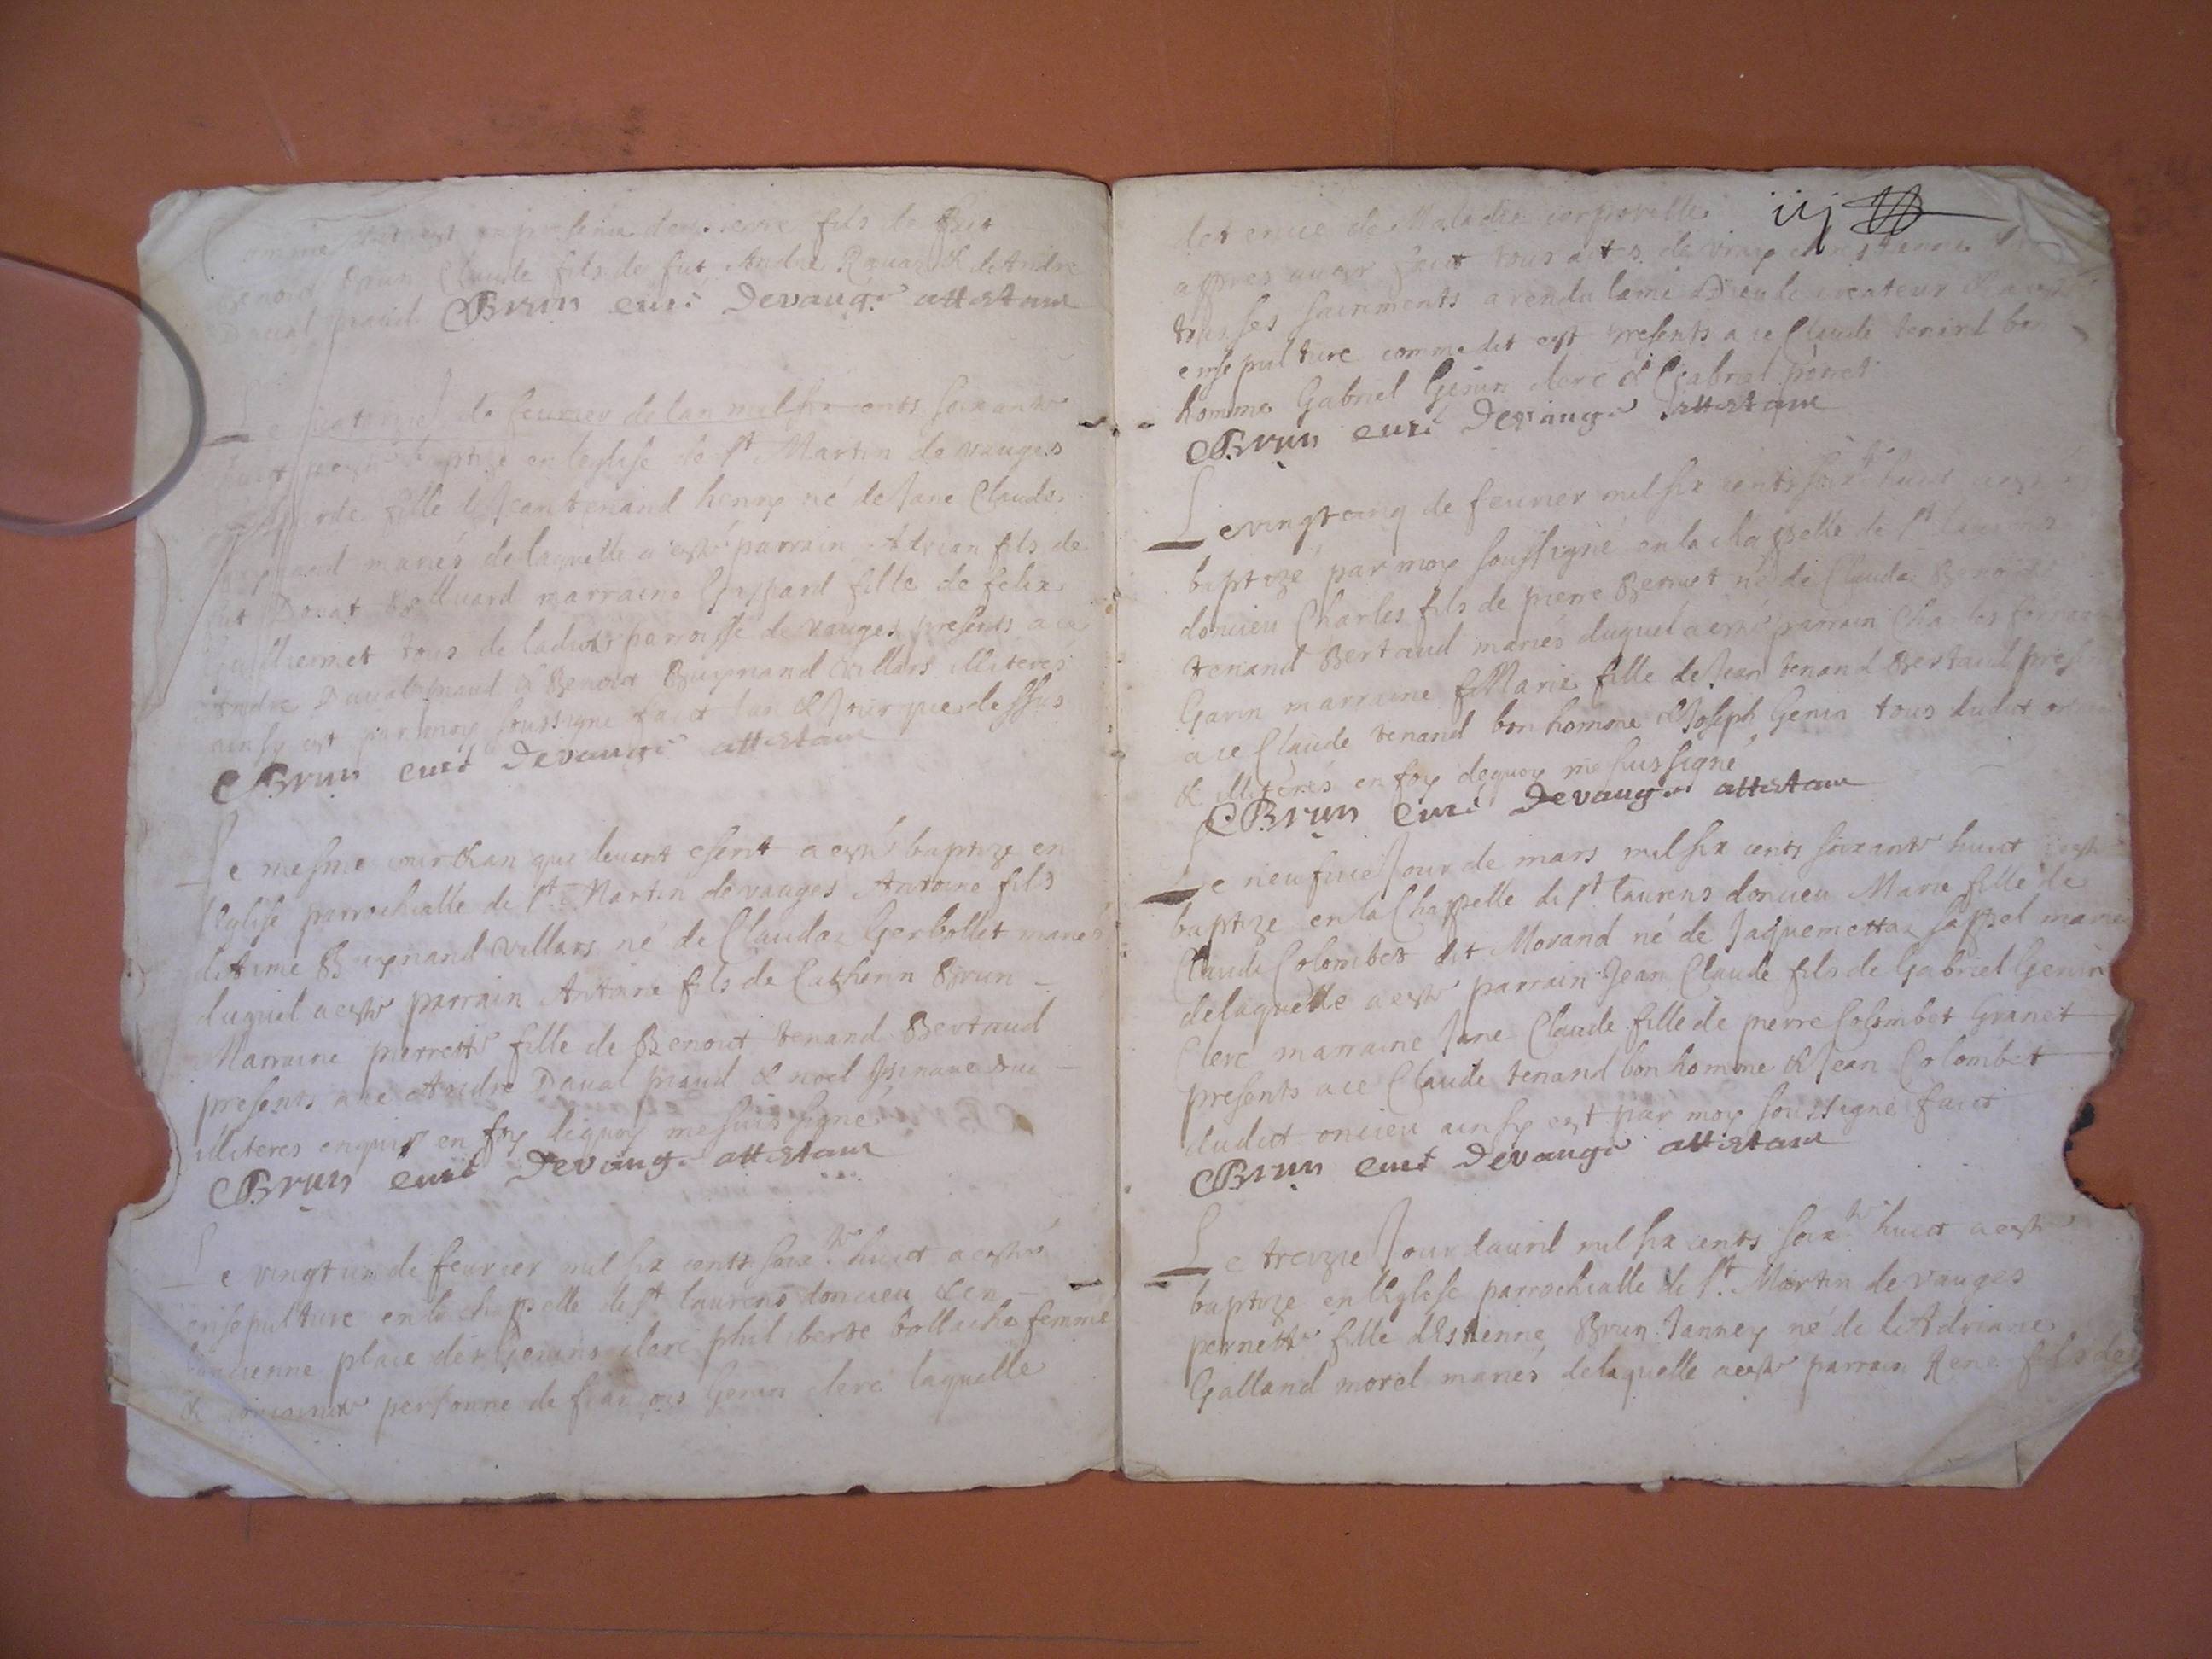 Comme dit est en presence de pierre fils de fut
Benoict Brun Claude fils de fut Andre & de Andre
Daual praud CBrun curé Devauge attestant
Le quatorzie de feurier de lan mil six cents soixante
huict a esté baptizé en leglise de st Martin de vauges
fille de Jean tenand henry né de Jane Claude
mariés de laquelle a esté parrain Adrian fils de
fut Donat marraine Gaspard fille de felix
tous de ladicte parroisse de vauges presents a ce
Andre Daual praud & Benoict Buynand villars illiteres
ainsy est par moy soussigne faict lan & Jour que dessus
CBrun curé Devauge attestant
Le mesme jour & an que deuant escrit a esté baptizé en
l'eglise parrochialle de st Martin de vauges Antoine fils
de Aimé Buynand villars né de Clauda Gerbollet mariés
duquel a esté parrain Antoine fils de Catherin Brun -
Marraine pierrette fille de Benoict tenand Bertaud
presents a ce Andre Daual praud & noel
illiteres enquis en foy dequoy me suis signé
CBrun curé Devauge attestant
Le vingt un de feurier mil six cents soixte huict a esté
ensepulturé en la chappelle de st laurens doncieu & en -
lancienne place des Genins clerc philiberte bollache femme
& conjointe personne de francois Genin clerc laquelle
iij
detenue de Maladie corporelle
appres auoir faict tous actes de vraye chrestienne
tous ses sacrements a rendu lame a Dieu le createur & a esté
ensepulturé comme dit est presents a ce Claude tenand bon
homme Gabriel Genin clerc & Gabriel perret
CBrun curé Devauge attestant
Le vingt cinq de feurier mil six cents soixte huict a esté
baptizé par moy soussigné en la chappelle de st laurens
doncieu Charles fils de pierre Bernet né de Clauda Benoite
tenand Bertaud mariés duquel a esté parrain Charles
Garin marraine Marie fille de Jean tenand Bertaud presents
a ce Claude tenand bon homme & Joseph Genin tous dudict
& illiterés en foy dequoy me suis signé
CBrun curé Devauge attestant
Le neufuie Jour de mars mil six cents soixante huict a esté
baptizé en la Chappelle de st laurens doncieu Marie fille de
Claude Colombet dit Morand né de Jaquemettaz sappel mariés
de laquelle a esté parrain Jean Claude fils de Gabriel Genin
Clerc marraine Jane Claude fille de pierre Colombet Granet
presents a ce Claude tenand bon homme & Jean Colombet
dudict oncieu ainsy est par moy soussigné faict
CBrun curé Devauge attestant
Le treizie Jour dauril mil six cents soixte huict a esté
baptizé en l'eglise parrochialle de st Martin de vauges
pernette fille d'Estienne Brun Janney né de le Adriane
Galland morel mariés de laquelle a esté parrain Rene fils de